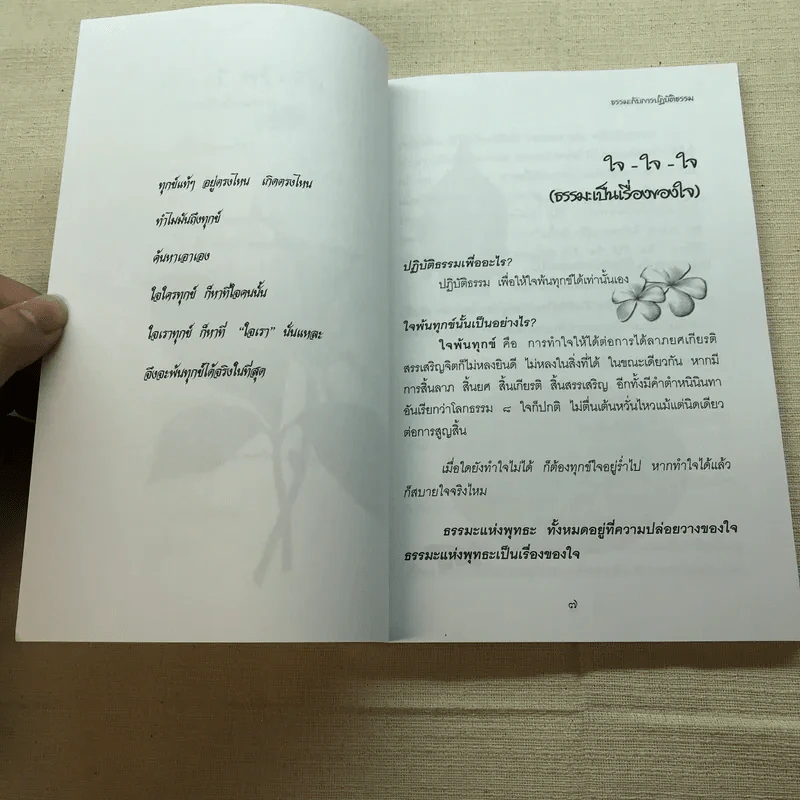 ทุกข์แท้ๆ อยู่ตรงไหน เกิดตรงไหน
ทำไมมันถึงทุกข์
ค้นหาเอาเอง
ใจใครทุกข์ ก็หาที่ใจคนนั้น
ใจเราทุกข์ ก็หาที่ “ใจเรา” นั่นแหละ
จึงจะพ้นทุกข์ได้จริงในที่สุด
ธรรมะกับการปฏิบัติธรรม
ใจ - ใจ - ใจ
(ธรรมะเป็นเรื่องของใจ)
ปฏิบัติธรรมเพื่ออะไร?
ปฏิบัติธรรม เพื่อให้ใจพ้นทุกข์ได้เท่านั้นเอง
ใจพ้นทุกข์นั้นเป็นอย่างไร?
ใจพ้นทุกข์ คือ การทำใจให้ได้ต่อการได้ลาภยศเกียรติ
สรรเสริญจิตก็ไม่หลงยินดี ไม่หลงในสิ่งที่ได้ ในขณะเดียวกัน หากมี
การสิ้นลาภ สิ้นยศ สิ้นเกียรติ สิ้นสรรเสริญ อีกทั้งมีคำตำหนินินทา
อันเรียกว่าโลกธรรม ๘ ใจก็ปกติ ไม่ตื่นเต้นหวั่นไหวแม้แต่นิดเดียว
ต่อการสูญสิ้น
เมื่อใดยังทำใจไม่ได้ ก็ต้องทุกข์ใจอยู่ร่ำไป หากทำใจได้แล้ว
ก็สบายใจจริงไหม
ธรรมะแห่งพุทธะ ทั้งหมดอยู่ที่ความปล่อยวางของใจ
ธรรมะแห่งพุทธะเป็นเรื่องของใจ
๗